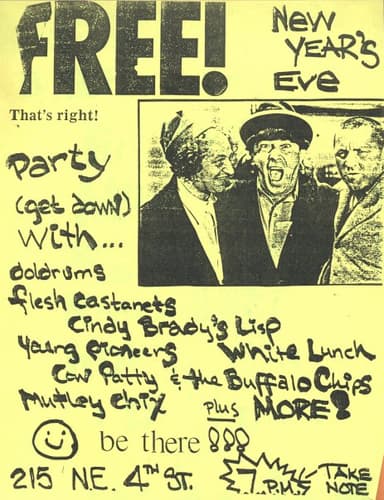 FREE!
New
YEAR'S
Eve
That's right!
Party
(get down!)
with...
doldrums
flesh castanets
Cindy Brady's Lisp
Young Pioneers
White Lunch
Cow Patty & the Buffalo Chips
Mutley Chix
plus MORE!
be there !!!
215 N.E. 4TH ST.
7 P.M.
TAKE
NOTE